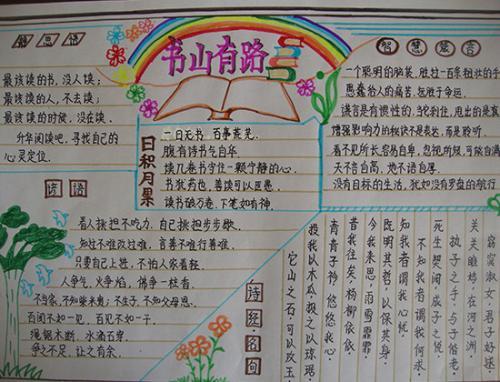 书山有路
最该读的书，没人读；
最该读的人，不去读；
最该读的时候，没在读。
分华阅读吧，寻找自己的
心灵定位。
日积月累
一日无书，百事荒芜。
腹有诗书气自华
读几卷书守住一颗宁静的心。
书犹药也，善读可以医愚。
读书破万卷，下笔如有神。
智慧箴言
一个聪明的脑袋，胜过一百条粗壮的手
愚蠢给人的痛苦，包胜于命运。
谎言是有惯性的，当轮刹住，甩出的是真
增强影响力的秘诀不是表达，而是聆听。
看不见所长容易自卑，忽视所短，可能自满
天不言自高，地不语自厚。
没有目标的生活，犹如没有罗盘的航行
谚语
看人挑担不吃力，自己挑担步步歇。
知过不难改过难，言善不难行善难。
只要自己上进，不怕人家看轻。
人争气，火争焰，佛争一柱香。
不当家，不知柴米贵；不生子，不知父母恩。
百闻不如一见，百见不如一干
绳锯木断，水滴石穿
争之不足，让之有余。
诗经名句
窈窕淑女，君子好逑
关关雎鸠，在河之洲
执子之手，与子偕老
死生契阔，成子之悦
不知我者谓我何求
知我者谓我心忧
既明其哲，以保其身
今我来思，雨雪霏霏
昔我往矣，杨柳依依
青青子衿，悠悠我心
投我以木瓜，报之以琼琚
它山之石，可以攻玉